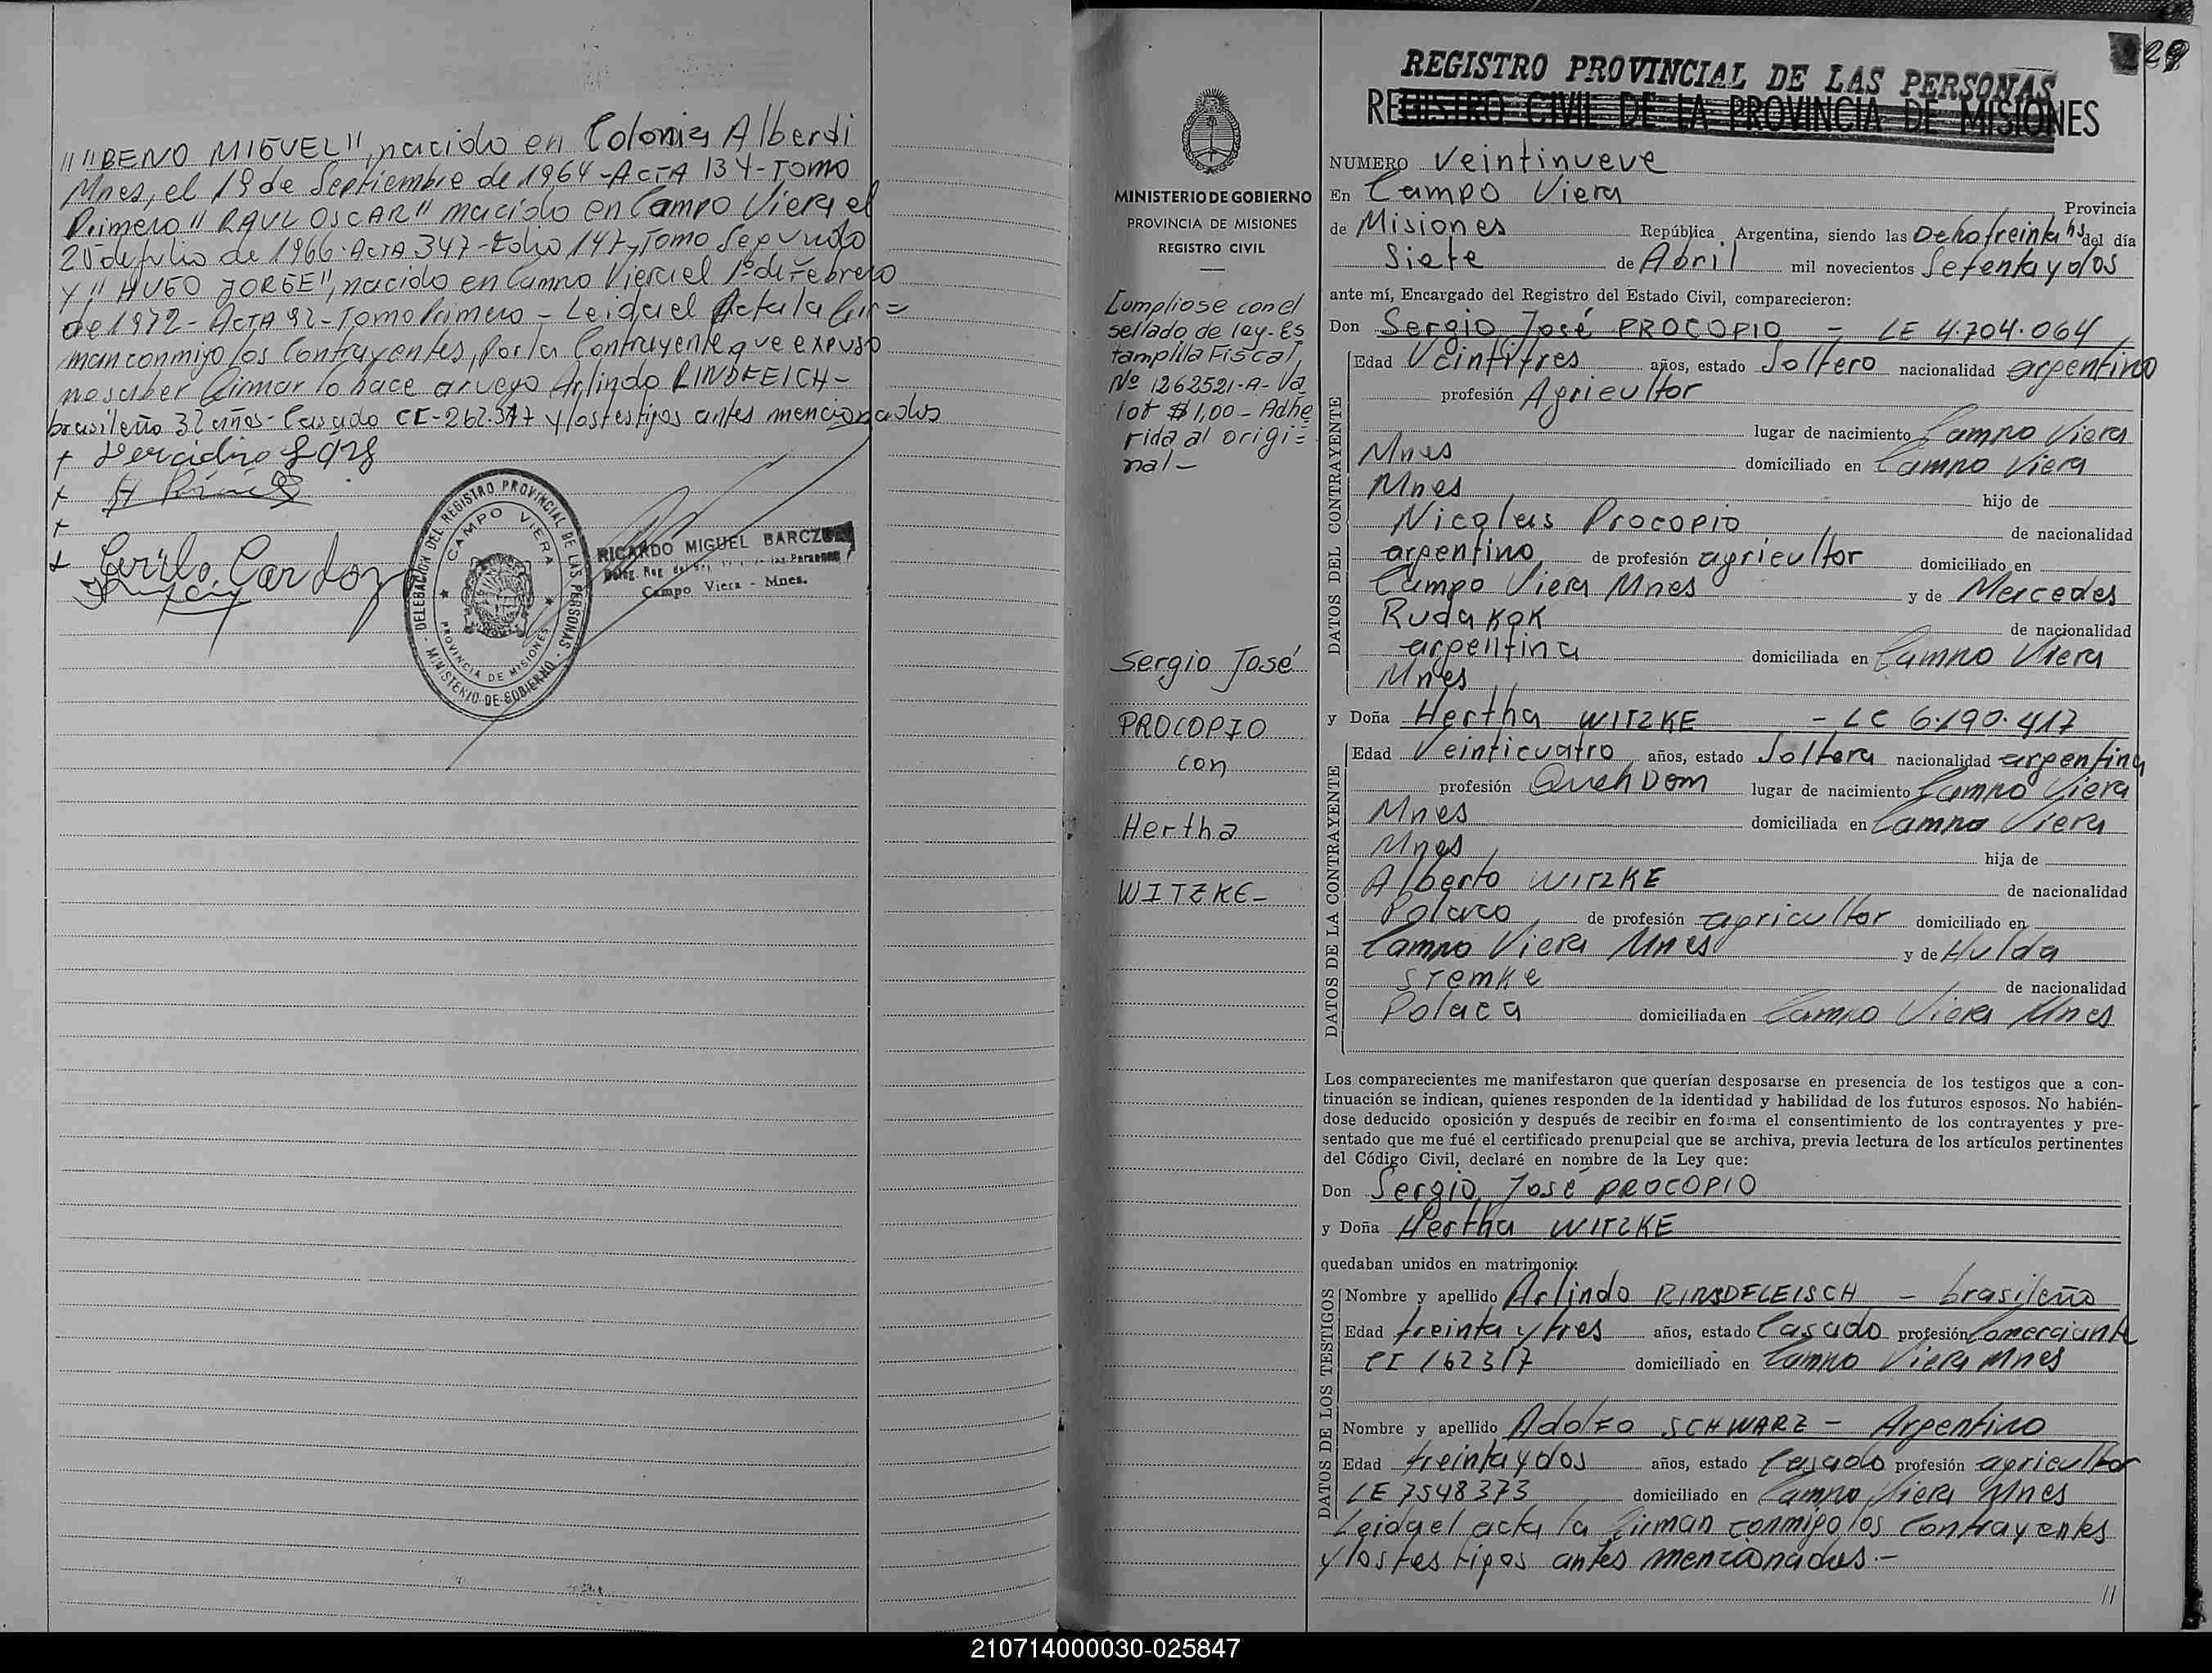 ""BENO MIGUEL", nacido en Colonia Alberdi
Mnes, el 19 de Septiembre de 1964 - ACTA 134 - Tomo
Primero " RAUL OSCAR" nacido en Campo Viera el
de Julio de 1966. ACTA 347 - Folio 147, Tomo Segundo
y " HUGO JORGE", nacido en Campo Viera el 1º de Febrero
de 1972 - ACTA 92 - Tomo Primero - Leida el Acta la fir=
man conmigo los Contrayentes, por la Contrayente que expuso
no saber firmar lo hace a ruego Arlindo RINDFEICH -
brasileño 32 años - Casado CI - 262.317 y los testigos antes mencionados
Cirilo Cardozo
DELEGACION DEL REGISTRO PROVINCIAL DE LAS PERSONAS
CAMPO VIERA
PROVINCIA DE MISIONES
MINISTERIO DE GOBIERNO
RICARDO MIGUEL
Campo Viera - Mnes.
29
MINISTERIO DE GOBIERNO
PROVINCIA DE MISIONES
REGISTRO CIVIL
Cumpliose con el
sellado de ley - Es
tampilla Fiscal
Nº 1262521 - A - Va
lor $ 1,00 - Adhe
rida al origi=
nal -
Sergio José
PROCOPIO
con
Hertha
WITZKE -
REGISTRO PROVINCIAL DE LAS PERSONAS
REGISTRO CIVIL DE LA PROVINCIA DE MISIONES
NUMERO Veintinueve
En Campo Viera Provincia
de Misiones República Argentina, siendo las Ocho treinta hs del día
Siete de Abril mil novecientos Setenta y dos
ante mí, Encargado del Registro del Estado Civil, comparecieron:
Don Sergio José PROCOPIO - LE 4.704.064
DATOS DEL CONTRAYENTE
Edad Veintitres años, estado Soltero nacionalidad argentino
profesión Agricultor
lugar de nacimiento Campo Viera
Mnes domiciliado en Campo Viera
Mnes hijo de
Nicolas Procopio de nacionalidad
argentino de profesión agricultor domiciliado en
Campo Viera Mnes y de Mercedes
Rudakok de nacionalidad
argentina domiciliada en Campo Viera
Mnes
y Doña Hertha WITZKE - LC 6.190.417
DATOS DE LA CONTRAYENTE
Edad Veinticuatro años, estado Soltera nacionalidad argentina
profesión Queh Dom lugar de nacimiento Campo Viera
Mnes domiciliada en Campo Viera
Mnes hija de
Alberto WITZKE de nacionalidad
Polaco de profesión agricultor domiciliado en
Campo Viera Mnes y de Hulda
STemKe de nacionalidad
Polaca domiciliada en Campo Viera Mnes
Los comparecientes me manifestaron que querían desposarse en presencia de los testigos que a con-
tinuación se indican, quienes responden de la identidad y habilidad de los futuros esposos. No habién-
dose deducido oposición y después de recibir en forma el consentimiento de los contrayentes y pre-
sentado que me fué el certificado prenupcial que se archiva, previa lectura de los artículos pertinentes
del Código Civil, declaré en nombre de la Ley que:
Don Sergio José PROCOPIO
y Doña Hertha WITZKE
quedaban unidos en matrimonio:
DATOS DE LOS TESTIGOS
Nombre y apellido Arlindo RINSDFLEISCH - brasileño
Edad treinta y tres años, estado Casado profesión Comerciante
CI 162317 domiciliado en Campo Viera Mnes
Nombre y apellido Adolfo SCHWARZ - Argentino
Edad treinta y dos años, estado Casado profesión agricultor
LE 7548373 domiciliado en Campo Viera Mnes
Leida el acta la firman conmigo los Contrayentes
y los testigos antes mencionados.-
//
210714000030-025847